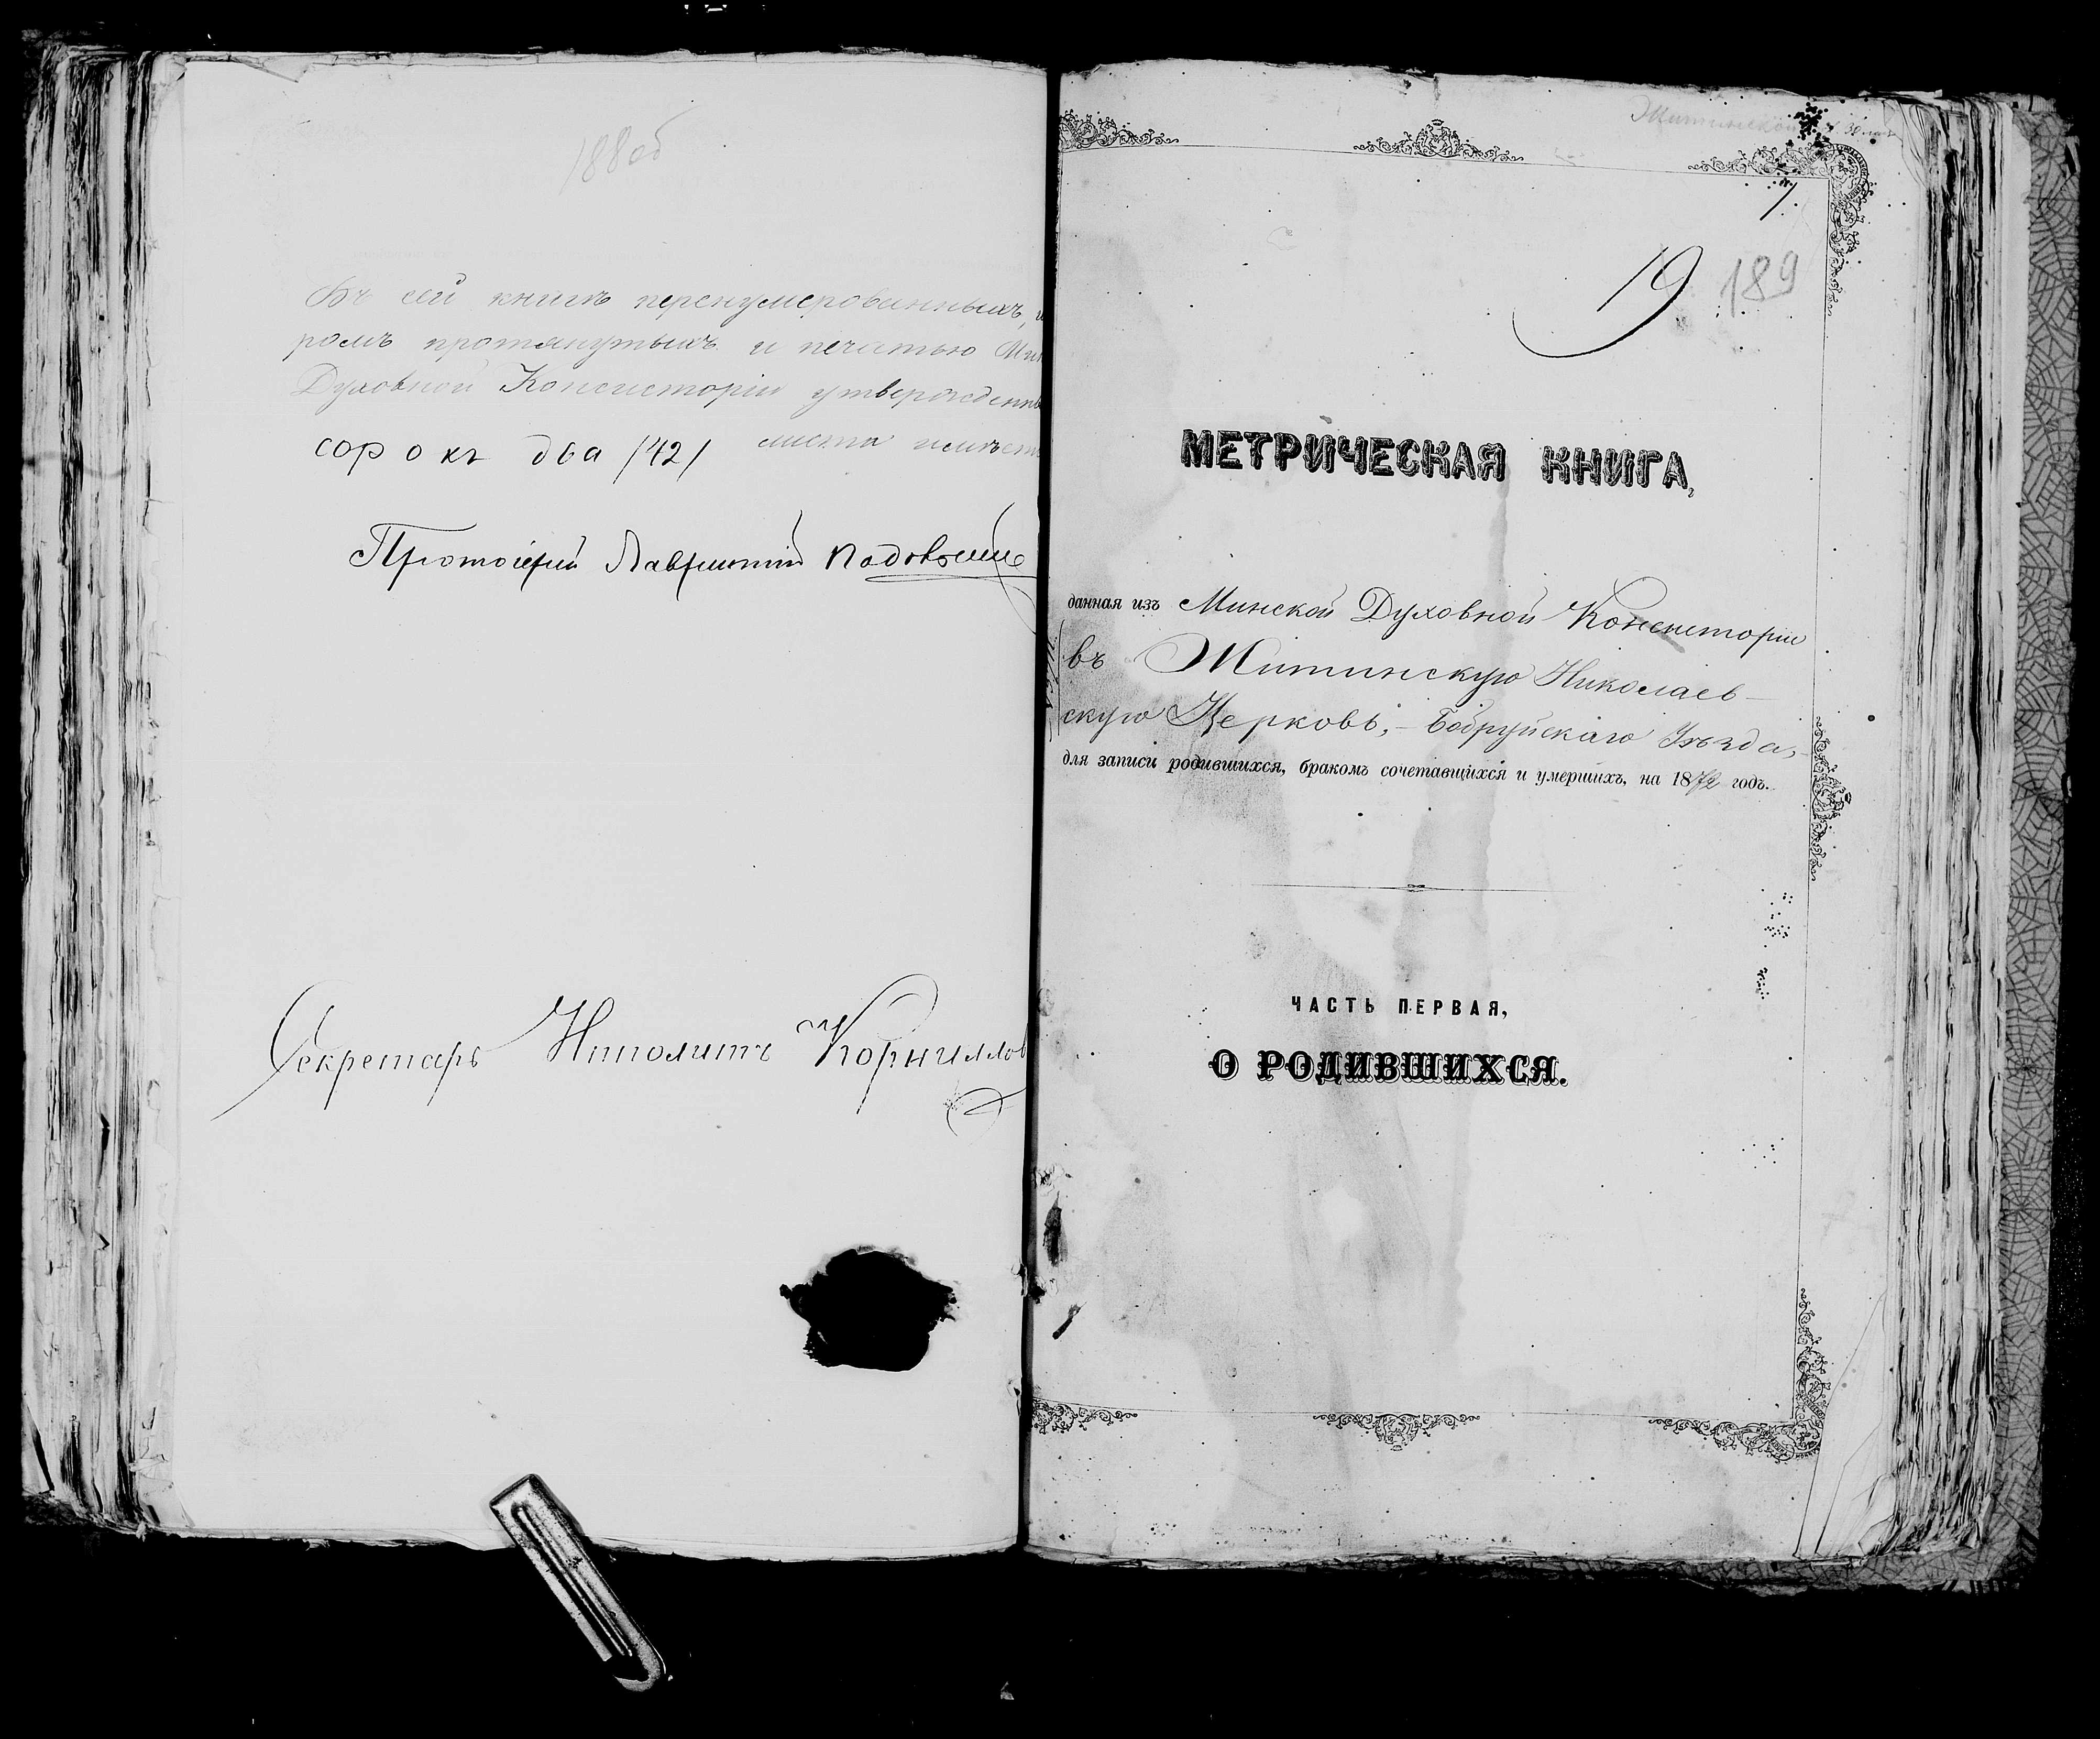 188об
Въ сей книгѣ перенумерованныхъ,
ромъ протянутыхъ и печатью Мин
Духовной Консисторіи утвержденны
сорокъ два /42/ листа имѣет
Протоіерей Лаврентій
Секретарь Иполитъ Корниллов
Житинской
19 189
МЕТРИЧЕСКАЯ КНИГА,
данная изъ Минской Духовной Консисторіи
въ Житинскую Николаев-
скую Церковь, Бобруйскаго Уѣзда,
для записи родившихся, бракомъ сочетавшихся и умершихъ, на 1872 годъ.
ЧАСТЬ ПЕРВАЯ,
О РОДИВШИХСЯ.